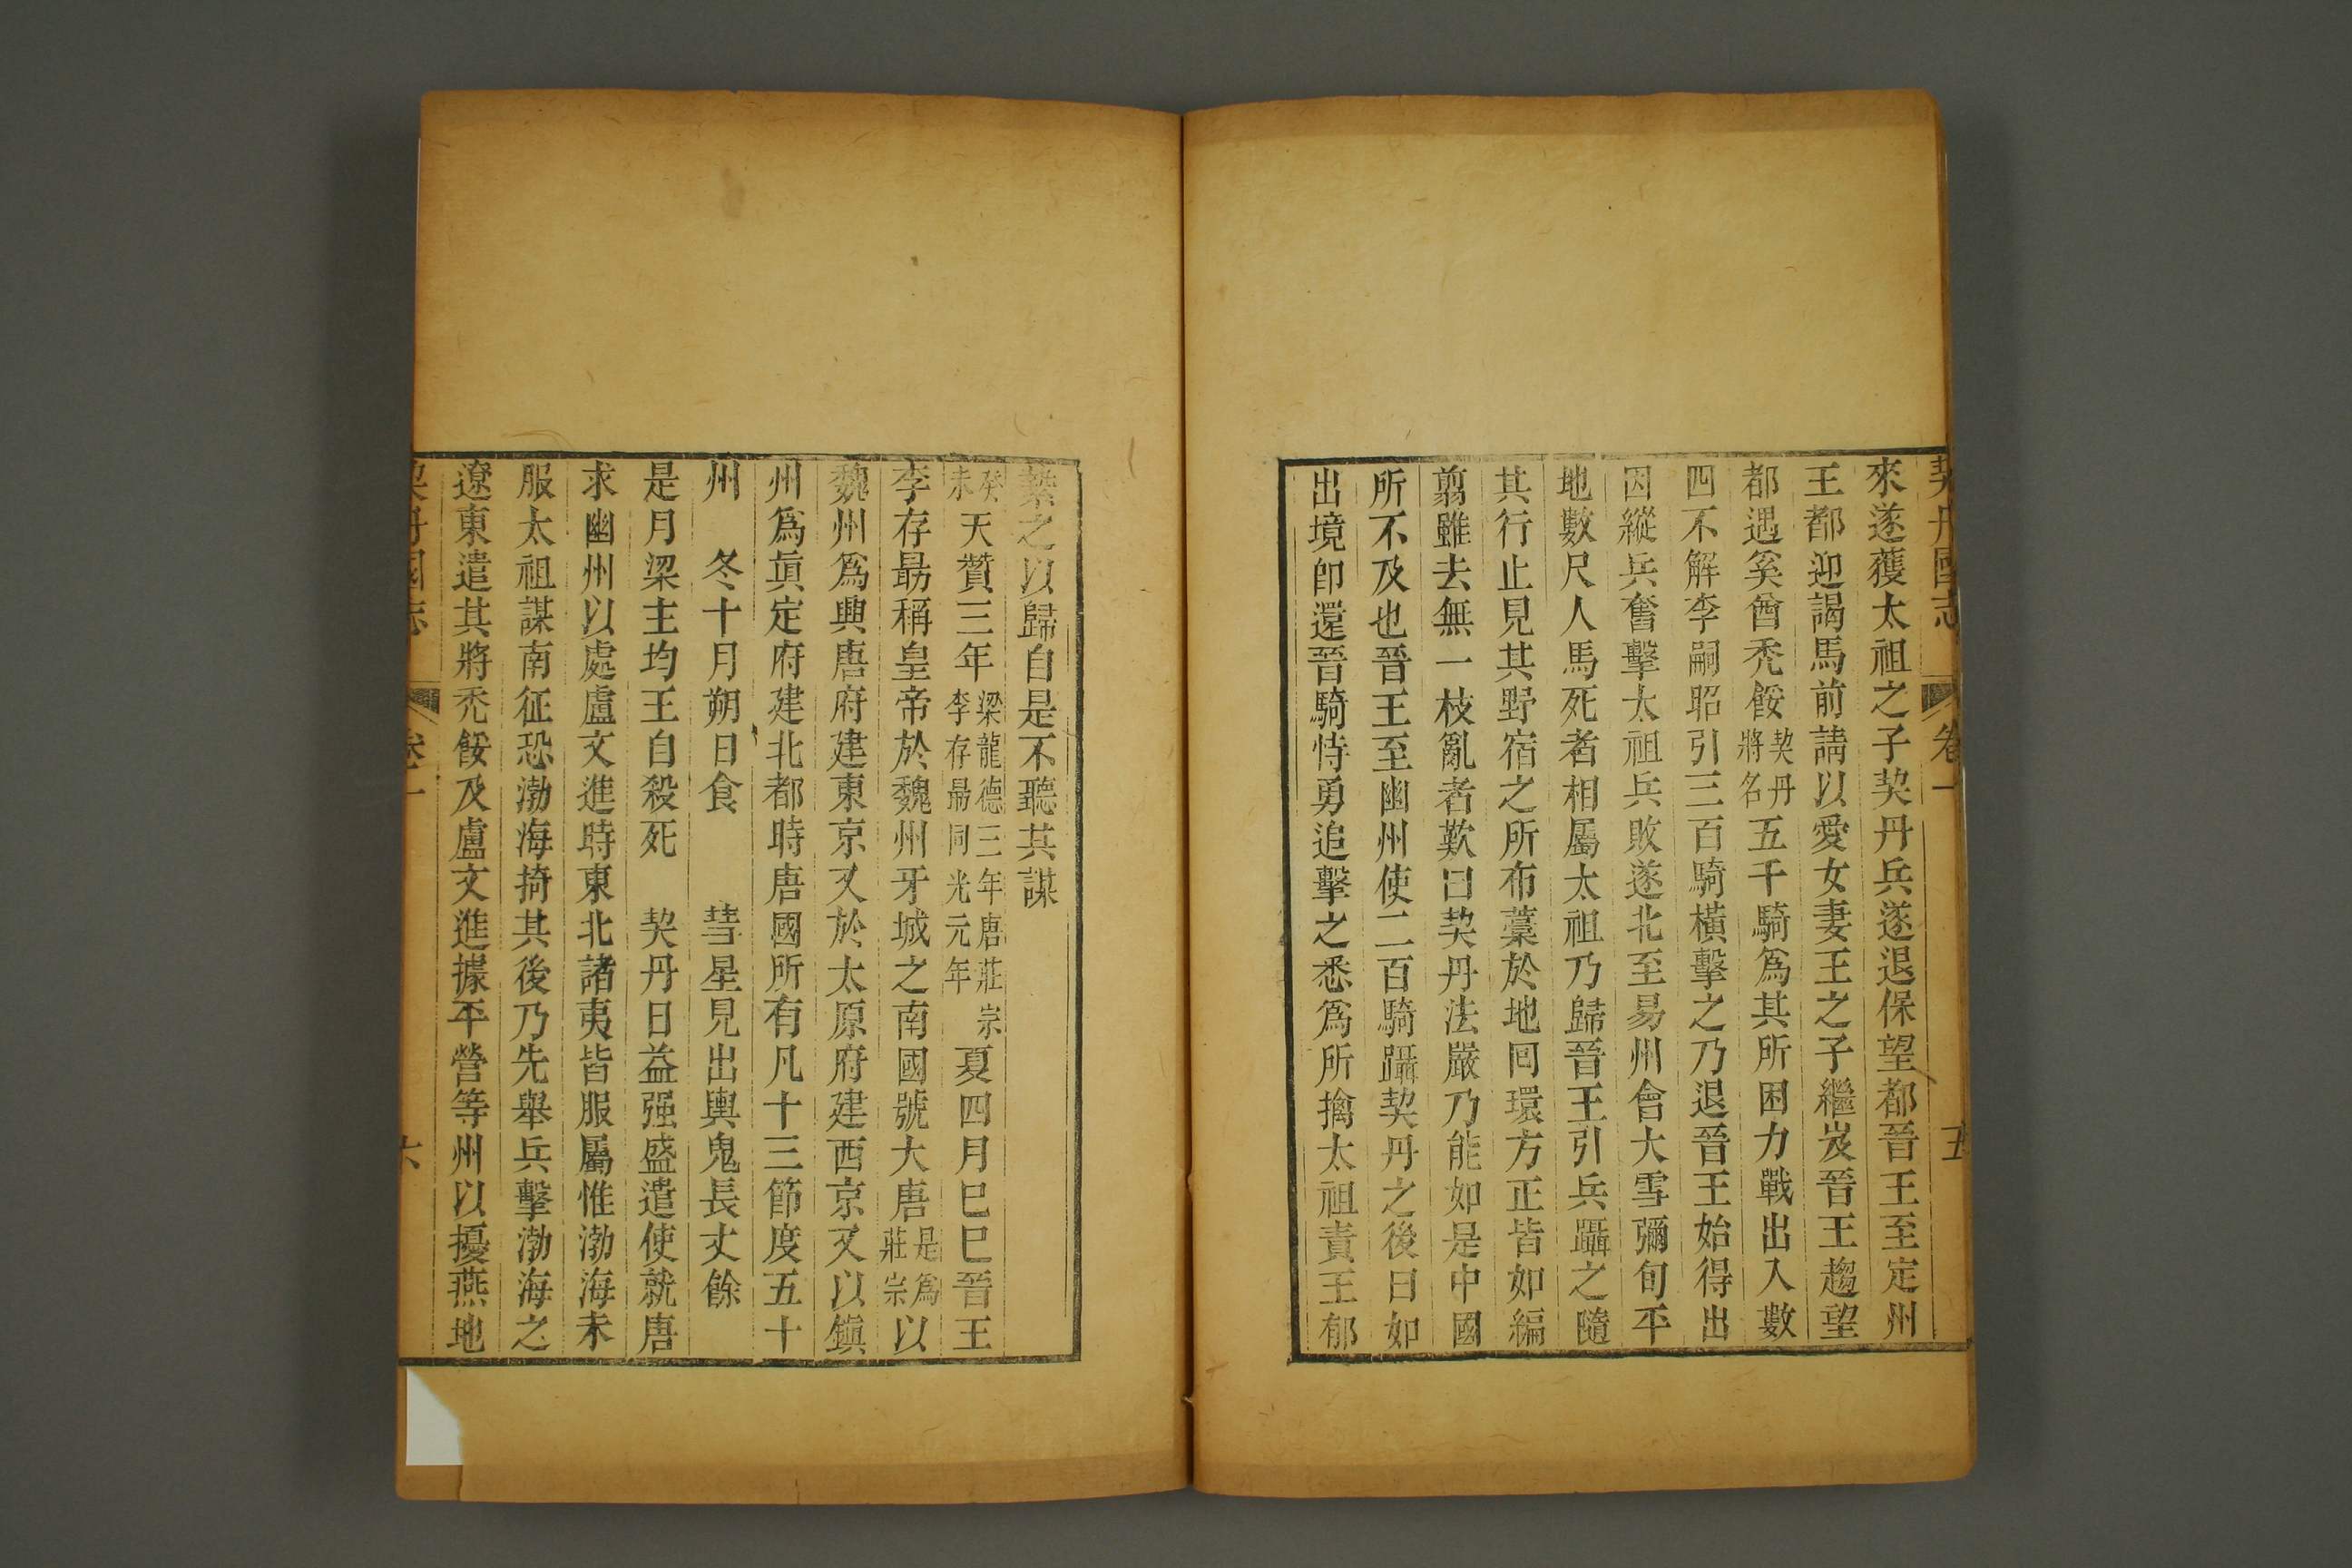 契丹國志 卷一 五
來遂獲太祖之子契丹兵遂退保望都晉王至定州
王都迎謁馬前請以愛女妻王之子繼岌晉王趨望
都遇奚酋禿餒契丹將名五千騎爲其所困力戰出入數
四不解李嗣昭引三百騎橫擊之乃退晉王始得出
因縱兵奮擊太祖兵敗遂北至易州會大雪彌旬平
地數尺人馬死者相屬太祖乃歸晉王引兵躡之隨
其行止見其野宿之所布藁於地囘環方正皆如編
翦雖去無一枝亂者歎曰契丹法嚴乃能如是中國
所不及也晉王至幽州使二百騎躡契丹之後曰如
出境卽還晉騎恃勇追擊之悉爲所擒太祖責王郁
縶之以歸自是不聽其謀
癸未天贊三年梁龍德三年唐莊宗李存勗同光元年夏四月已巳晉王
李存勗稱皇帝於魏州牙城之南國號大唐是爲莊宗以
魏州爲興唐府建東京又於太原府建西京又以鎭
州爲眞定府建北都時唐國所有凡十三節度五十
州 冬十月朔日食 彗星見出輿鬼長丈餘
是月梁主均王自殺死 契丹日益强盛遣使就唐
求幽州以處盧文進時東北諸夷皆服屬惟渤海未
服太祖謀南征恐渤海掎其後乃先舉兵擊渤海之
遼東遣其將禿餒及盧文進據平營等州以擾燕地
契丹國志 卷一 六